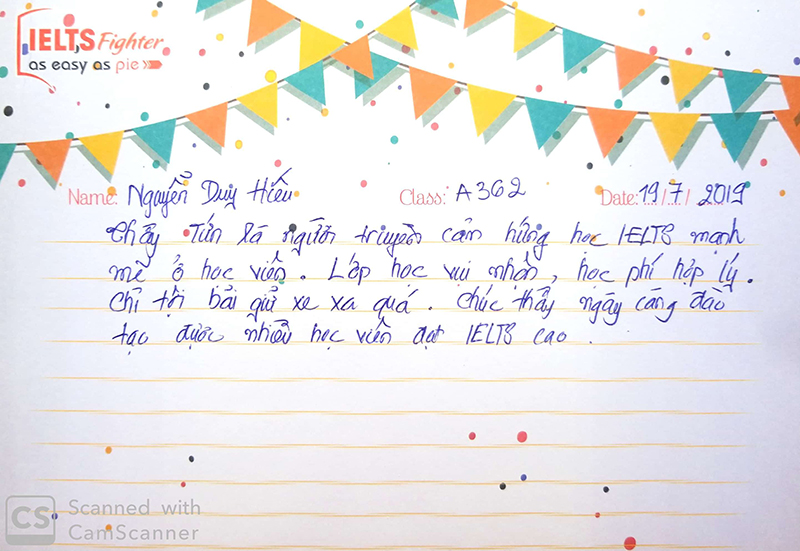 IELTS Fighter
as easy as pie
Name: Nguyễn Duy Hiếu Class: A362 Date: 19/7/2019
Thầy Tín là người truyền cản hứng học IELTS mạnh
mẽ ở học viên. Lớp học vui nhộn, học phí hợp lý.
Chỉ tội bãi giữ xe xa quá. Chúc thầy ngày càng đào
tạo được nhiều học viên đạt IELTS cao.
CS Scanned with
CamScanner